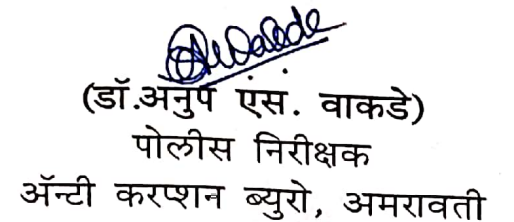 (डॉ.अनुप एस. वाकडे)
पोलीस निरीक्षक
ॲन्टी करप्शन ब्युरो, अमरावती